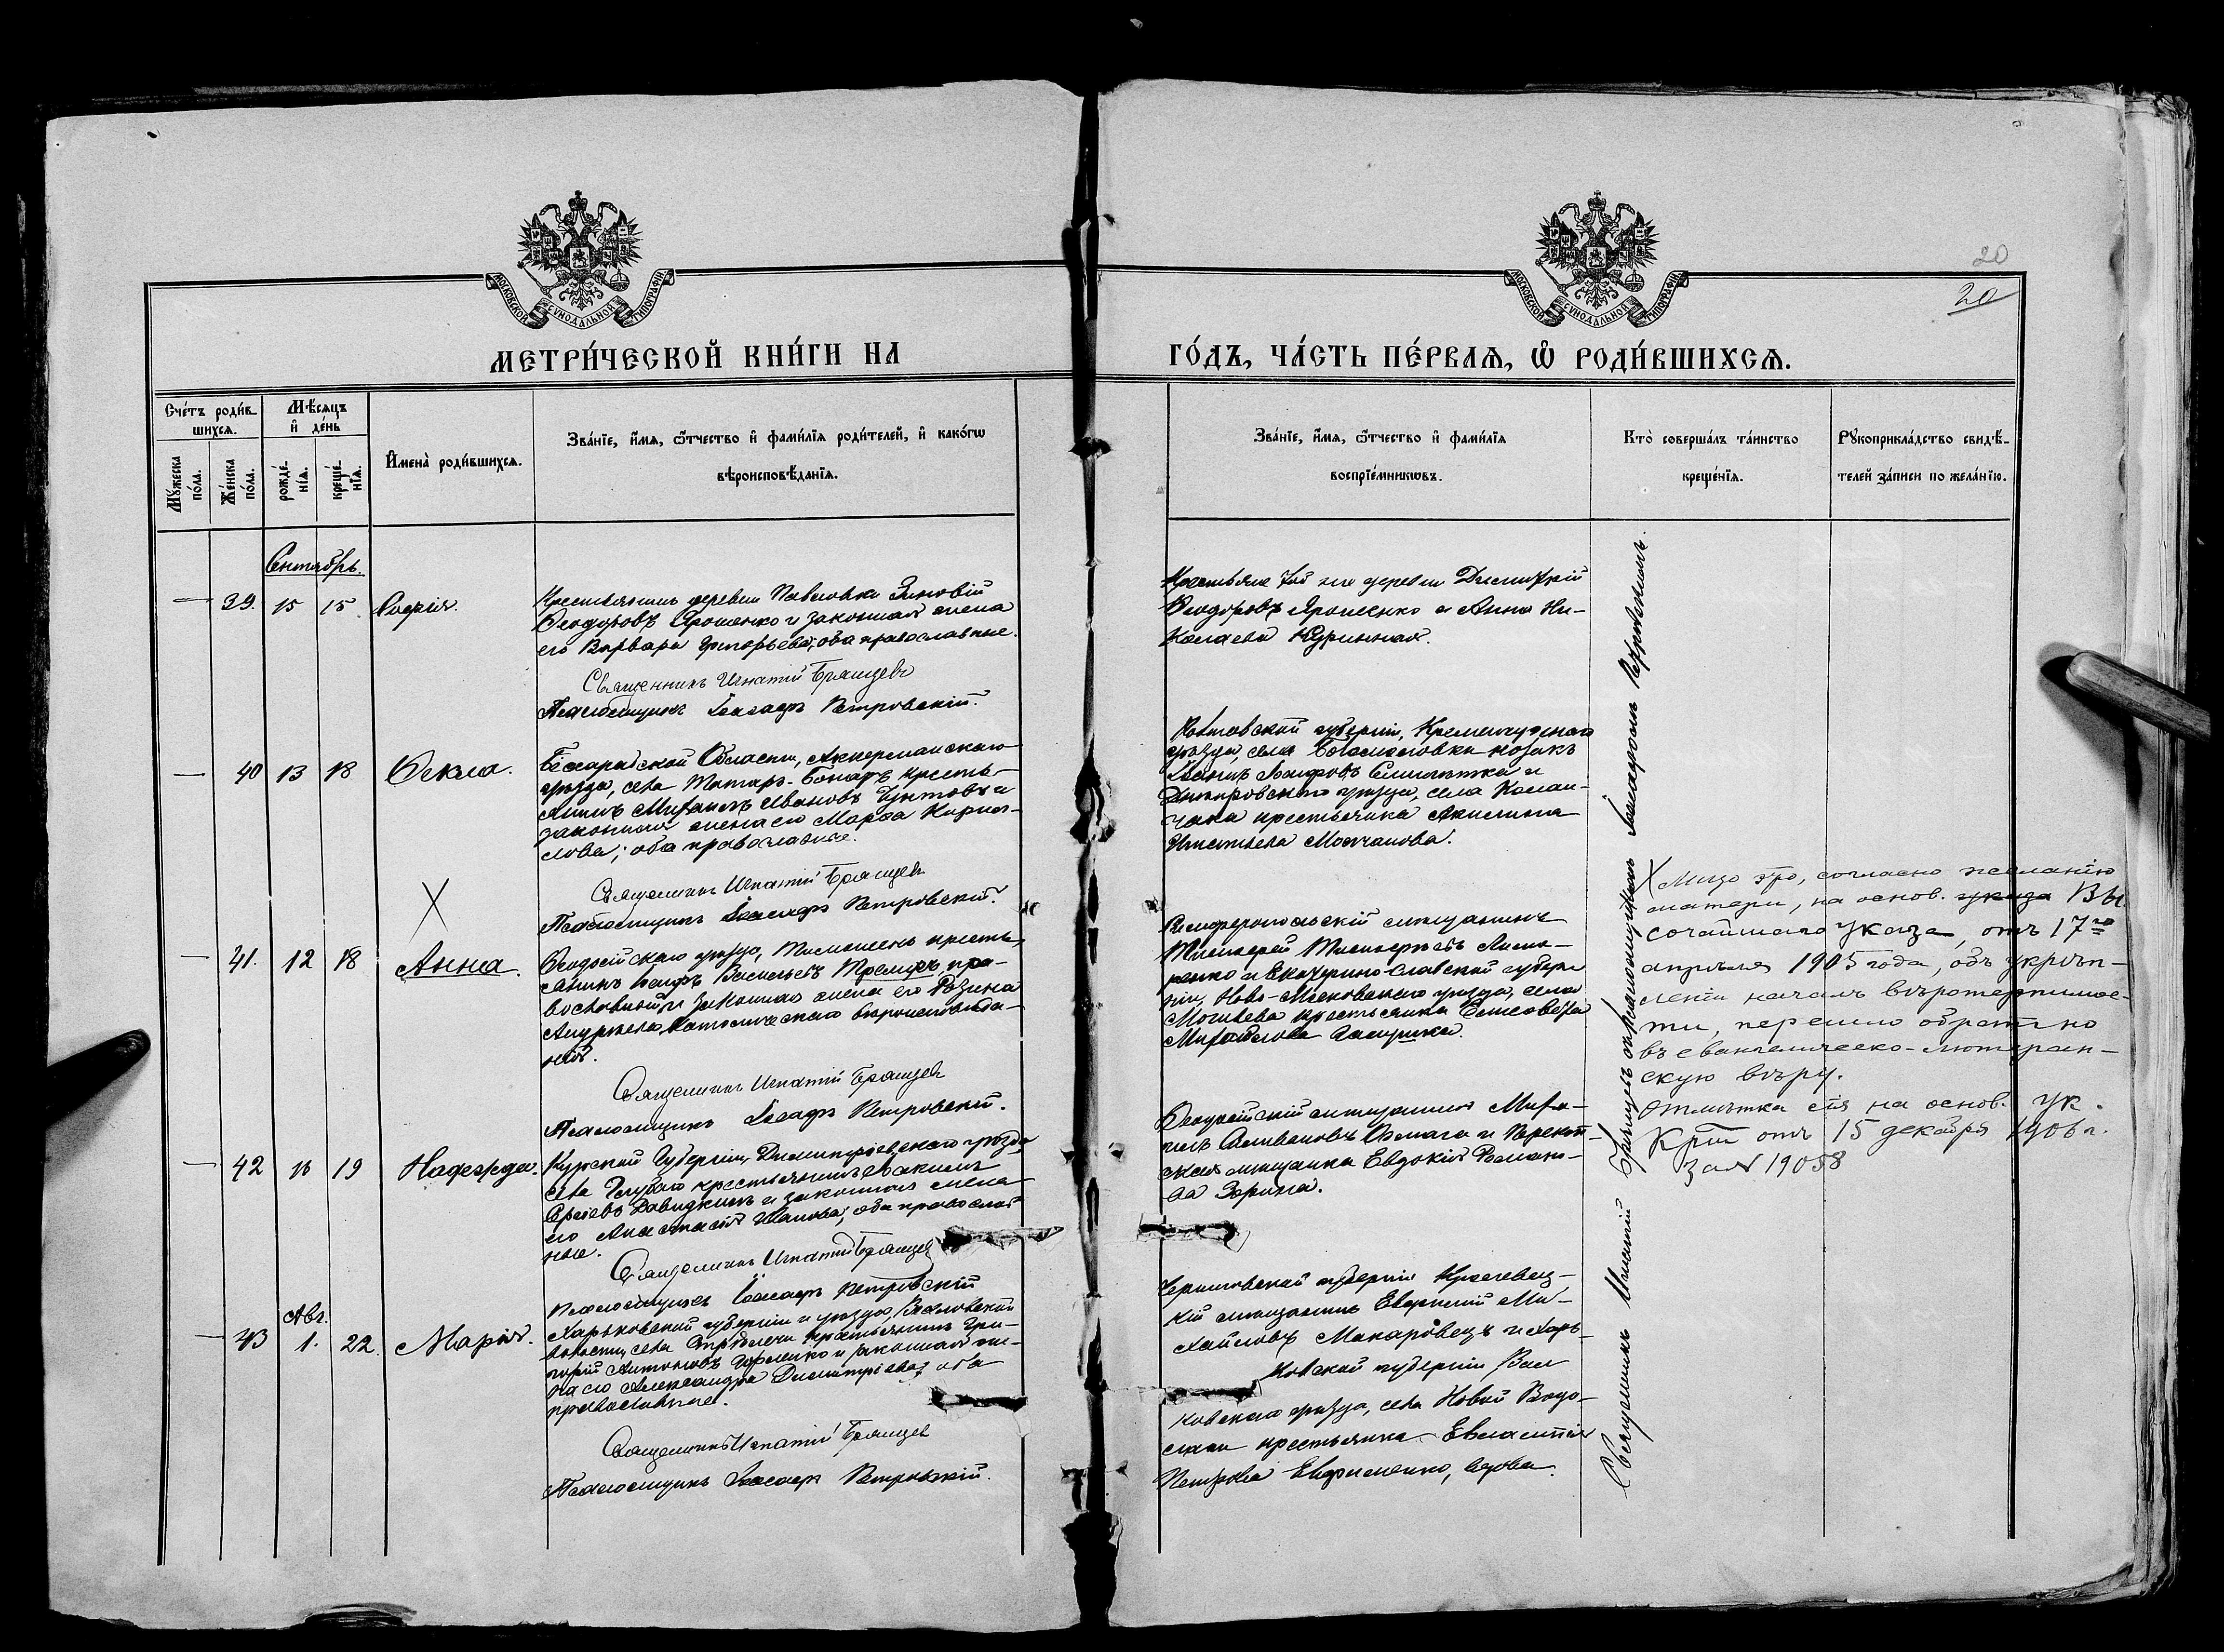 20
20
МОСКОВСКОЙ СѴНОДАЛЬНОЙ ТИПОГРАФІИ
МОСКОВСКОЙ СѴНОДАЛЬНОЙ ТИПОГРАФІИ
МЕТРИ́ЧЕСКОЙ КНИ́ГИ НА
ГО́ДЪ, ЧА́СТЬ ПЕ́РВАѦ, Ѡ҆ РОДИ́ВШИХСѦ.
Сче́тъ роди́в-
шихсѧ.
Мѣ́сѧцъ
и҆ де́нь
Мꙋ́жеска
по́ла.
Же́нска
по́ла.
рожде́-
нїѧ.
креще́-
нїѧ.
И҆мена̀ роди́вшихсѧ.
Зва́нїе, и҆́мѧ, ѻ҆́тчество и҆ фами́лїѧ роди́телей, и҆ како́гѡ
вѣроисповѣ́данїѧ.
Зва́нїе, и҆́мѧ, ѻ҆́тчество и҆ фами́лїѧ
воспрїе́мникѡвъ.
Кто̀ соверша́лъ та́инство
креще́нїѧ.
Рꙋкоприкла́дство свидѣ́-
телей за́писи по жела́нїю.
Сентябрь.
— 39. 15 15 Софія.
Крестьянинъ деревни Павловки Зиновій
Ѳеодоровъ Ярошенко и законная жена
его Варвара Григорьева; оба православные.
Священникъ Игнатій Брянцевъ
Псаломщикъ Іоасафъ Петровскій.
Крестьяне той же деревни Димитрій
Ѳеодоровъ Ярошенко и Анна Ни-
колаева
— 40 13 18 Ѳекла.
Бессарабской Области, Аккерманскаго
уѣзда, села Татаръ-Бонаръ кресть-
янинъ Михаилъ Ивановъ и
законная жена его Марѳа Кирил-
лова; оба православные.
Священникъ Игнатій Брянцевъ
Псаломщикъ Іоасафъ Петровскій.
Полтавской губерніи, Кременчугскаго
уѣзда, села козакъ
и
Днѣпровскаго уѣзда, села Калан-
чака крестьянка Акилина
Игнатьева Молчанова.
X
— 41. 12 18 Анна.
Ѳеодосійскаго уѣзда, кресть-
янинъ Іосифъ Васильевъ пра-
вославный и законная жена его Розина
Андреева, Католическаго вѣроисповѣда-
нія.
Священникъ Игнатій Брянцевъ
Псаломщикъ Іоасафъ Петровскій.
Симферопольскій мѣщанинъ
Тимоѳей Тимоѳеевъ
и Екатерино-славской губер-
ніи, Ново-Московскаго уѣзда, села
Могилева крестьянка Елисавета
Михайлова
X Лицо это, согласно желанію
матери, на основ. указа Вы-
сочайшаго указа, отъ 17го
апрѣля 1905 года, объ укрѣп-
леніи началъ вѣротерпимос-
ти, перешло обратно
въ евангелическо-лютеран-
скую вѣру.
Отмѣтка сія на основ. ук.
отъ 15 декабря 1906 г.
за № 19058
— 42 16 19 Надежда.
Курской Губерніи, Димитріевскаго уѣзда
села крестьянинъ
Сергѣевъ Давидкинъ и законная жена
его Анастасія Иванова; оба православ-
ные.
Священникъ Игнатій Брянцевъ
Псаломщикъ Іоасафъ Петровскій
Ѳеодосійскій мѣщанинъ Миха-
илъ и Перекоп-
ская мѣщанка Евдокія Романо-
ва Зорина.
Авг.
— 43 1. 22. Марія.
Харьковской губерніи и уѣзда,
волости, села крестьянинъ Гри-
горій Антоновъ и законная же-
на его Александра Димитріева; оба
православные.
Священникъ Игнатій Брянцевъ
Псаломщикъ Іоасафъ Петровскій.
Черниговской губерніи Кролевец-
кій мѣщанинъ Ми-
хайловъ Макаровецъ и Харь-
ковской губерніи Вал-
ковскаго уѣзда, села Новой Водо-
лаги крестьянка
Петрова Евфименко, вдова.
Священникъ Игнатій Брянцевъ съ псаломщикомъ Іоасафомъ Петровскимъ.